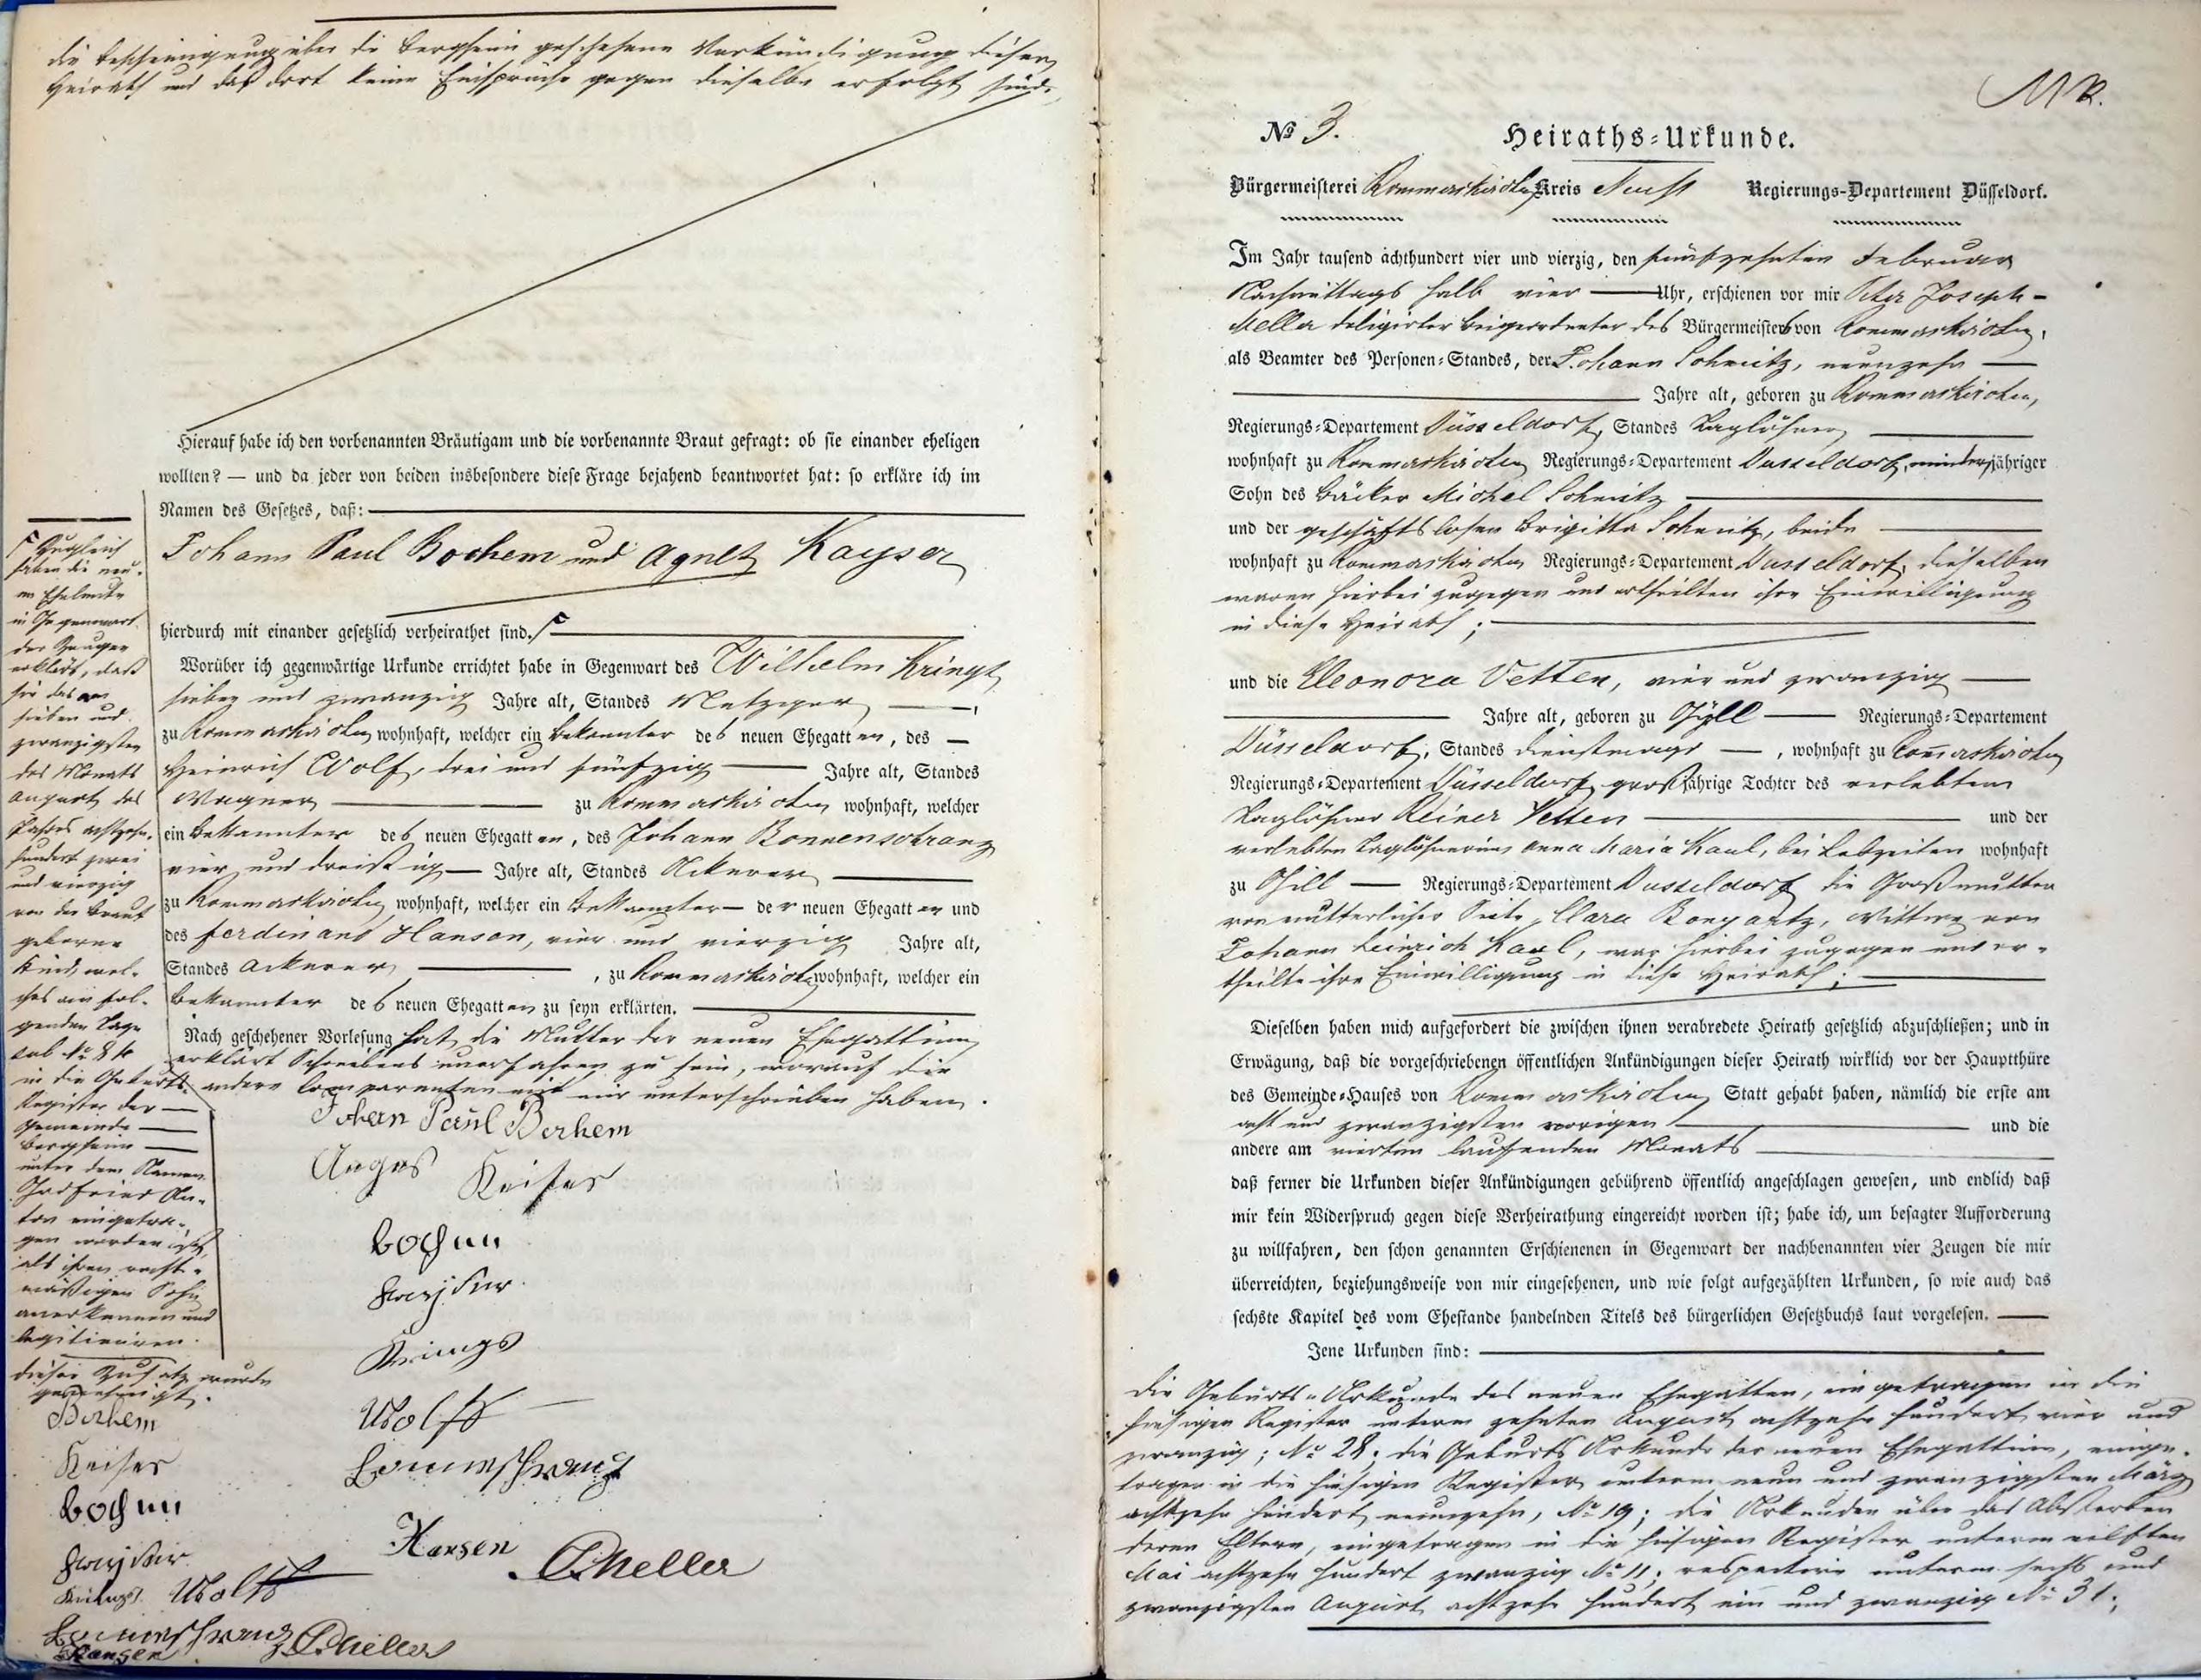 die Bescheinigung über die Bergheim geschehene Verkündigung dieser
Heirath und daß dort keine Einsprüche gegen dieselbe erfolgt sind.
Hierauf habe ich den vorbenannten Bräutigam und die vorbenannte Braut gefragt: ob sie einander eheligen
wollten? — und da jeder von beiden insbesondere diese Frage bejahend beantwortet hat: so erkläre ich im
Namen des Gesetzes, daß:
Johann Paul Bochem und Agnes Kayser
hierdurch mit einander gesetzlich verheirathet sind.
Worüber ich gegenwärtige Urkunde errichtet habe in Gegenwart des Wilhelm Krings
sieben und zwanzig Jahre alt, Standes Metzger,
zu Rommerskirchen wohnhaft, welcher ein Bekannter des neuen Ehegatten, des
Heinrich Wolf, drei und fünfzig Jahre alt, Standes
Wagner zu Rommerskirchen wohnhaft, welcher
ein Bekannter des neuen Ehegatten, des Johann Bonnenschranz
vier und dreißig Jahre alt, Standes Ackerer
zu Rommerskirchen wohnhaft, welcher ein Bekannter der neuen Ehegatten und
des Ferdinand Hansen, vier und vierzig Jahre alt,
Standes Ackerer, zu Rommerskirchen wohnhaft, welcher ein
Bekannter des neuen Ehegatten zu seyn erklärten.
Nach geschehener Vorlesung hat die Mutter der neuen Ehegattin
erklärt Schreibens unerfahren zu sein, worauf die
andere Comparenten mit mir unterschrieben haben.
Johan Paul Bochem
Agnes Keiser
Bochem
Kayser
Krings
Wolff
Bonnenschranz
Hansen PMeller
Zugleich
haben die neu-
en Eheleute
in Gegenwart
der Zeugen
erklärt, daß
sie das am
sieben und
zwanzigsten
des Monats
August des
Jahres achtzehn-
hundert zwei
und vierzig
von der Braut
geborne
Kind, wel-
ches am fol-
genden Tage
sub No 84
in die Geburts-
Register der
Gemeinde
Bergheim
unter dem Namen
Godfried An-
ton eingetra-
gen worden ist,
als ihren recht-
mäßigen Sohn
anerkennen und
legitimiren.
dieser Zusatz wurde
genehmigt.
Bochem
Keiser
Bochem
Kayser
Krings Wolff
Bonnenschranz PMeller
Hansen
MR.
No 3. Heiraths-Urkunde.
Bürgermeisterei Rommerskirchen Kreis Neuss Regierungs-Departement Düsseldorf.
Im Jahr tausend achthundert vier und vierzig, den fünfzehnten Februar
Nachmittags halb vier Uhr, erschienen vor mir Peter Joseph
Meller deligirter Beigeordneter des Bürgermeisters von Rommerskirchen,
als Beamter des Personen-Standes, der Johann Schmitz, neunzehn
Jahre alt, geboren zu Rommerskirchen,
Regierungs-Departement Düsseldorf, Standes Taglöhner
wohnhaft zu Rommerskirchen Regierungs-Departement Dusseldorf, minderjähriger
Sohn des Bäcker Michel Schmitz
und der geschäftslosen Brigitta Schmitz, beide
wohnhaft zu Rommerskirchen Regierungs-Departement Dusseldorf, dieselben
waren hierbei zugegen und ertheilten ihre Einwilligung
in diese Heirath;
und die Eleonora Vetten, vier und zwanzig
Jahre alt, geboren zu Gill Regierungs-Departement
Düsseldorf, Standes Dienstmagd, wohnhaft zu Rommerskirchen
Regierungs-Departement Düsseldorf großjährige Tochter des verlebten
Taglöhner Reiner Vetten und der
verlebten Taglöhnerin Anna Maria Kaul, bei Lebzeiten wohnhaft
zu Gill Regierungs-Departement Dusseldorf die Großmutter
von mütterlicher Seite, Clara Bongartz, Wittwe von
Johann Heinrich Kaul, war hierbei zugegen und er-
theilte ihre Einwilligung in diese Heirath;
Dieselben haben mich aufgefordert die zwischen ihnen verabredete Heirath gesetzlich abzuschließen; und in
Erwägung, daß die vorgeschriebenen öffentlichen Ankündigungen dieser Heirath wirklich vor der Hauptthüre
des Gemeinde-Hauses von Rommerskirchen Statt gehabt haben, nämlich die erste am
acht und zwanzigsten vorigen und die
andere am vierten laufenden Monats
daß ferner die Urkunden dieser Ankündigungen gebührend öffentlich angeschlagen gewesen, und endlich daß
mir kein Widerspruch gegen diese Verheirathung eingereicht worden ist; habe ich, um besagter Aufforderung
zu willfahren, den schon genannten Erschienenen in Gegenwart der nachbenannten vier Zeugen die mir
überreichten, beziehungsweise von mir eingesehenen, und wie folgt aufgezählten Urkunden, so wie auch das
sechste Kapitel des vom Ehestande handelnden Titels des bürgerlichen Gesetzbuchs laut vorgelesen.
Jene Urkunden sind:
die Geburts-Urkunde des neuen Ehegatten, eingetragen in die
hiesigen Register unterm zehnten August achtzehn hundert vier und
zwanzig; No 28; die Geburts Urkunde der neuen Ehegattin, einge-
tragen in die hiesigen Register unterm neun und zwanzigsten März
achtzehn hundert neunzehn, No 19; die Urkunden über das Absterben
deren Eltern, eingetragen in die hiesigen Register unterm eilften
Mai achtzehn hundert zwanzig No 11; respective unterm sechs und
zwanzigsten August achtzehn hundert ein und zwanzig No 31;